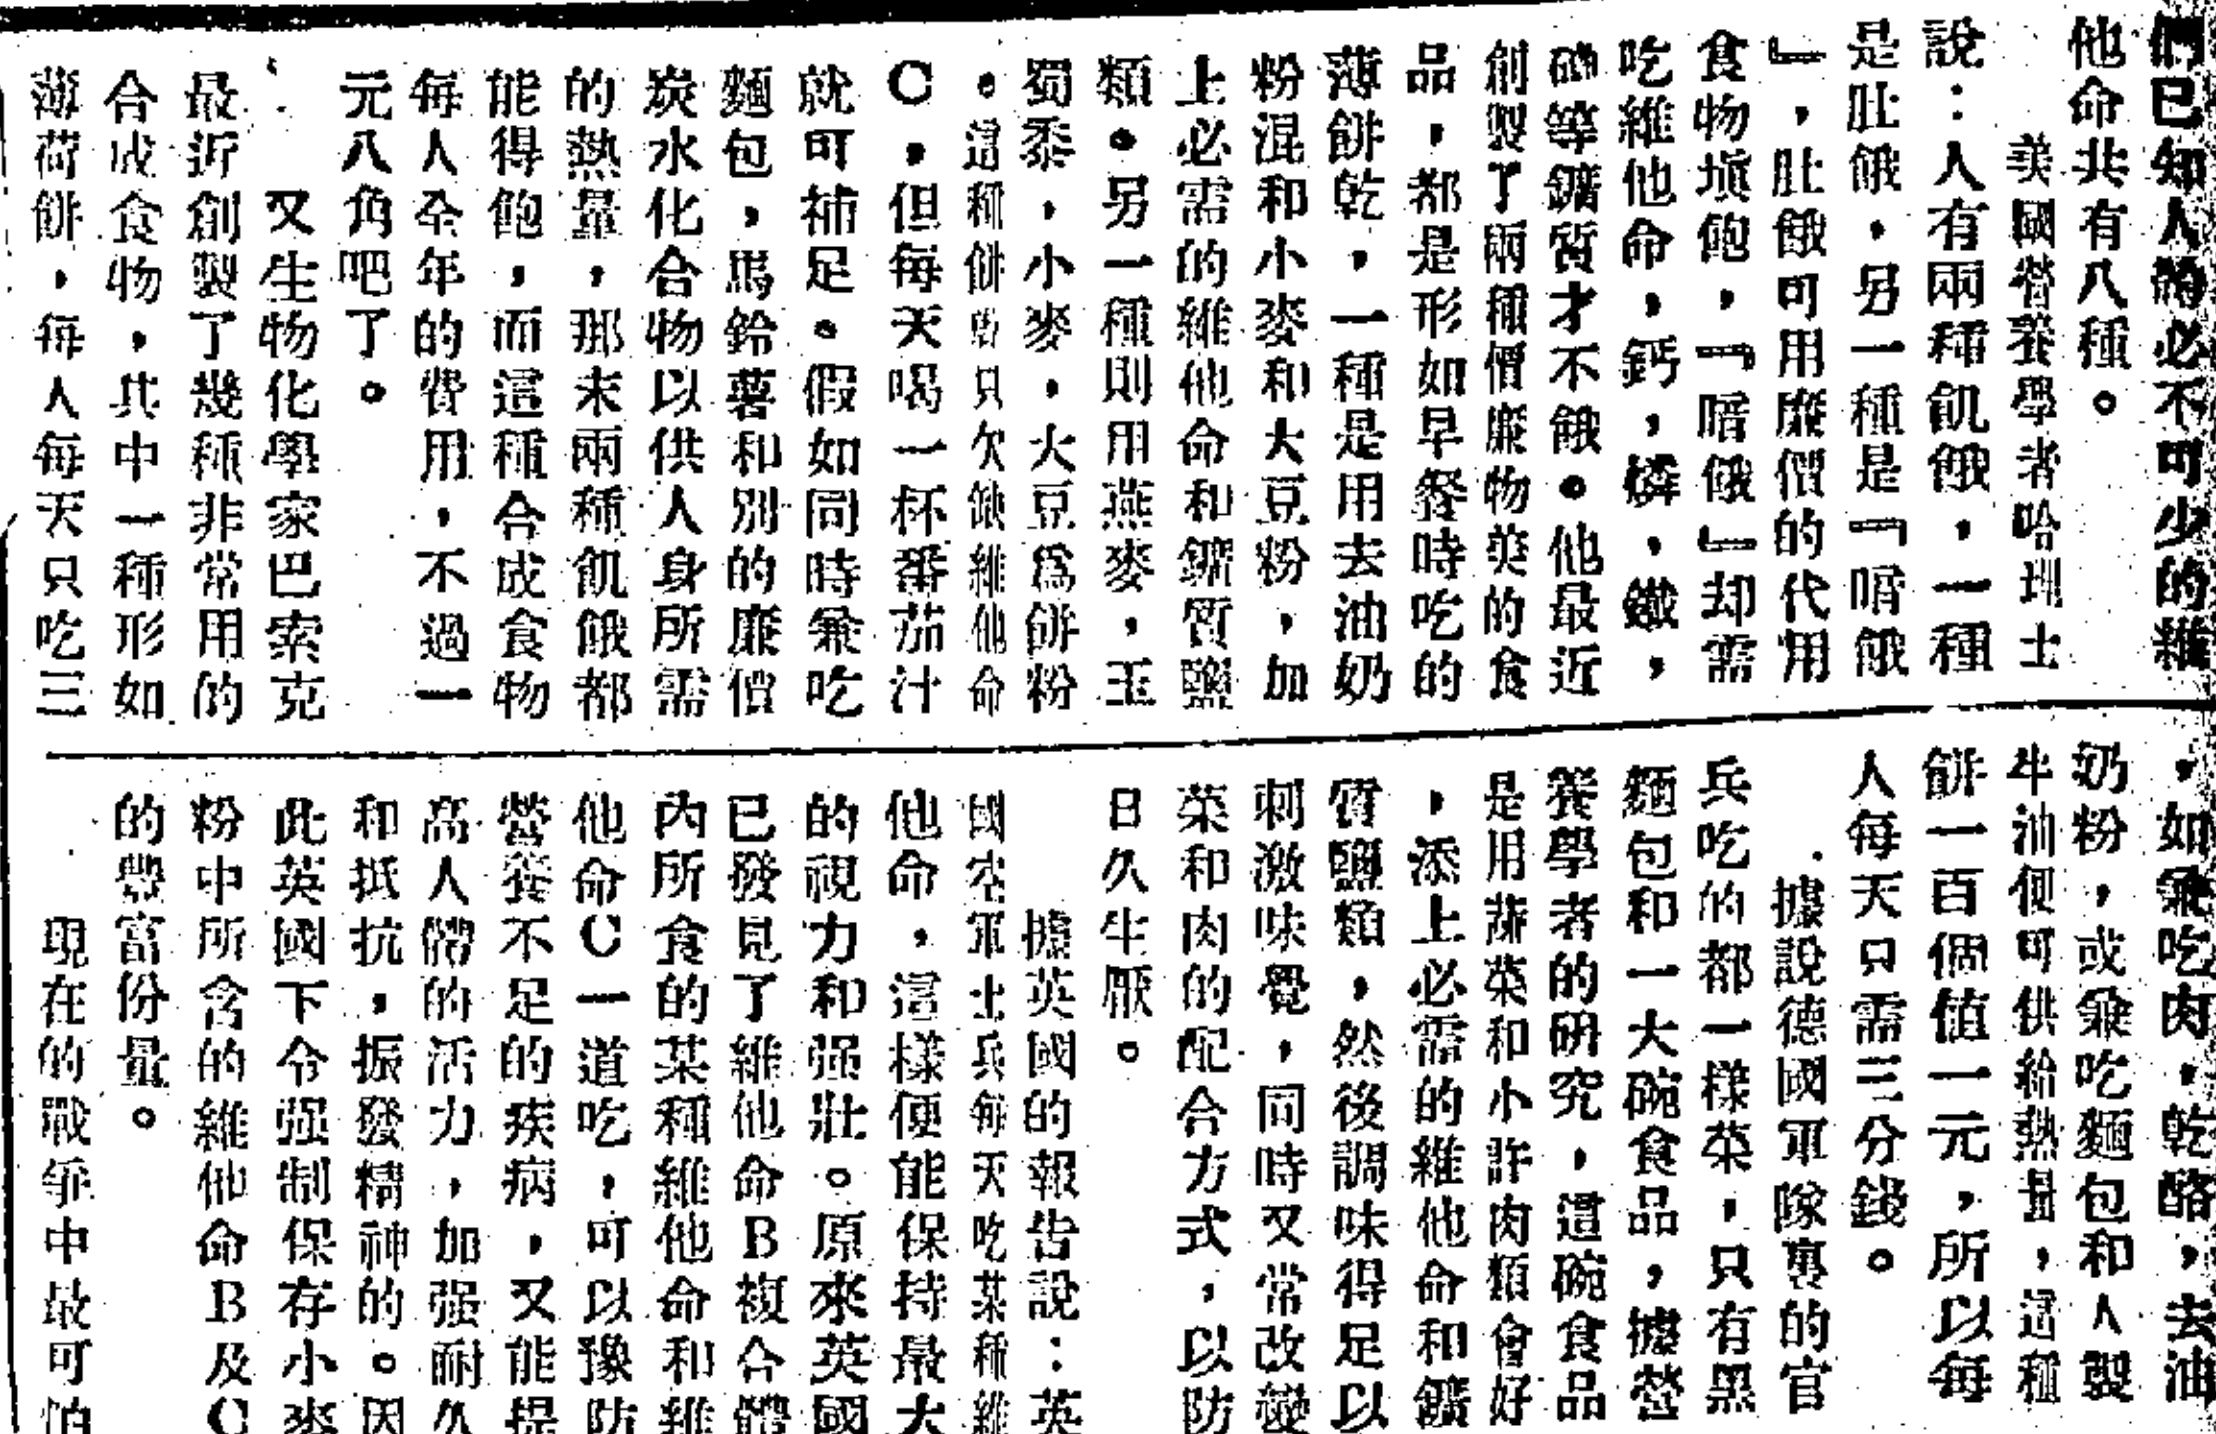 們已知人的必不可少的維
他命共有八種。
美國營養學者哈理士
說：人有兩種飢餓，一種
是肚餓，另一種是『暗餓
』，肚餓可用廉價的代用
食物塡飽，『暗餓』却需
吃維他命，鈣，燐，鐵，
碘等鑛質才不餓。他最近
創製了兩種價廉物美的食
品，都是形如早餐時吃的
薄餅乾，一種是用去油奶
粉混和小麥和大豆粉，加
上必需的維他命和鑛質鹽
類。另一種則用燕麥，玉
蜀黍，小麥，大豆爲餅粉
。這種餅乾只欠缺維他命
C，但每天喝一杯番茄汁
就可補足。假如同時兼吃
麵包，馬鈴薯和別的廉價
炭水化合物以供人身所需
的熱量，那末兩種飢餓都
能得飽，而這種合成食物
每人全年的費用，不過一
元八角吧了。
又生物化學家巴索克
最近創製了幾種非常用的
合成食物，共中一種形如
薄荷餅，每人每天只吃三
，如兼吃肉，乾酪，去油
奶粉，或兼吃麵包和人製
牛油便可供給熱量，這種
餅一百個值一元，所以每
人每天只需三分錢。
據說德國軍隊裏的官
兵吃的都一樣菜，只有黑
麵包和一大碗食品，據營
養學者的研究，這碗食品
是用蔬菜和小許肉類會好
，添上必需的維他命和鑛
質鹽類，然後調味得足以
刺激味覺，同時又常改變
菜和肉的配合方式，以防
日久生厭。
據英國的報告說：英
國空軍士兵每天吃某種維
他命，這樣便能保持最大
的視力和强壯。原來英國
已發見了維他命B複合體
內所食的某種維他命和維
他命C一道吃，可以豫防
營養不足的疾病，又能提
高人體的活力，加强耐久
和抵抗，振發精神的。因
此英國下令强制保存小麥
粉中所含的維他命B及C
的豐富份量。
現在的戰爭中最可怕